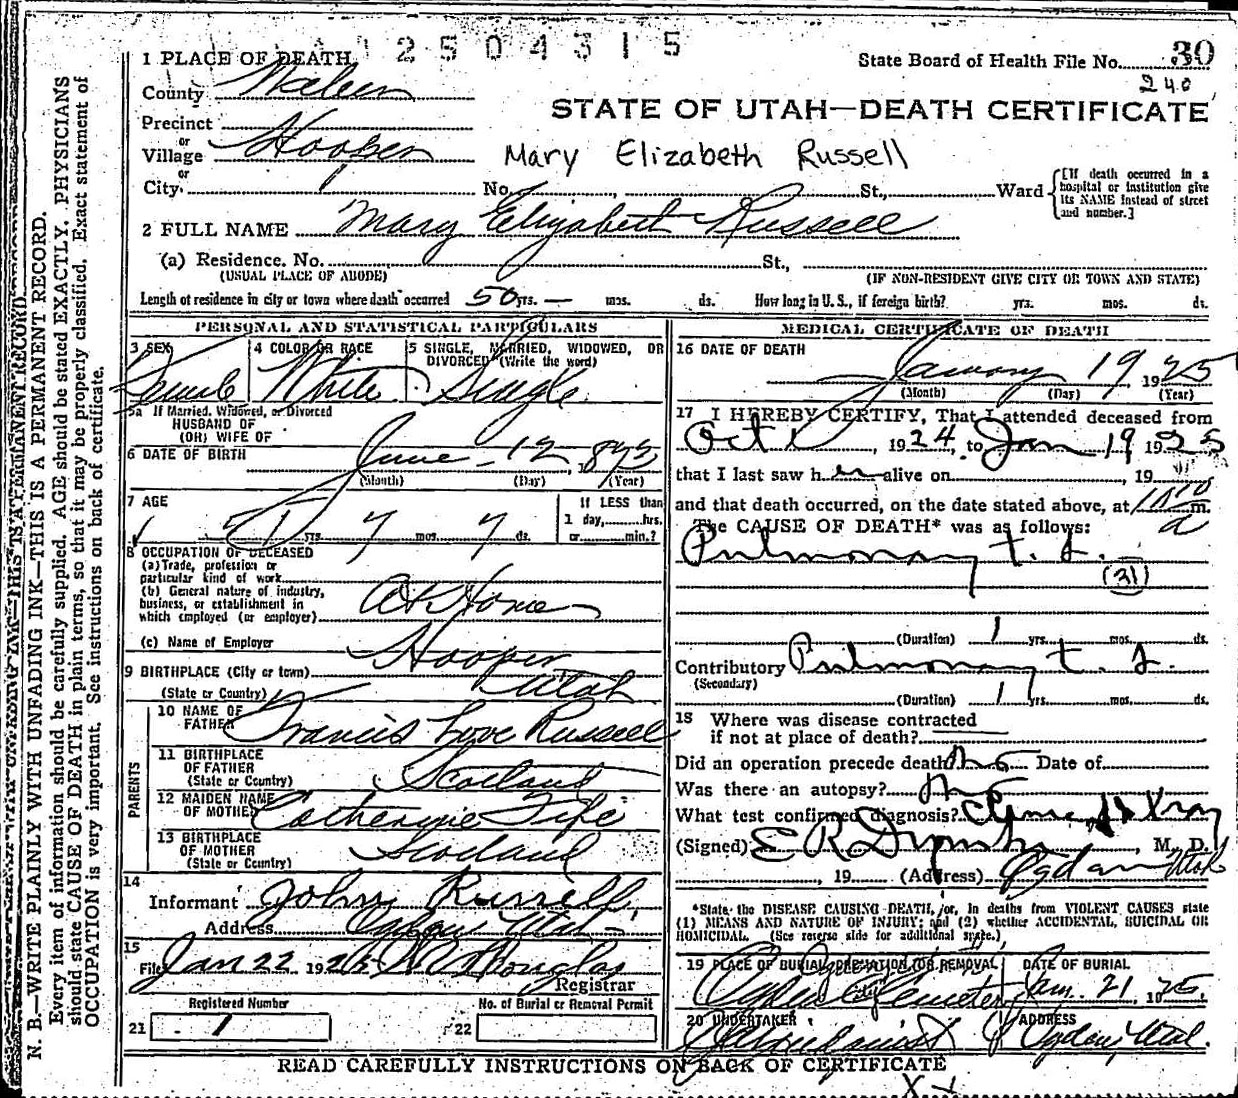 12504315
1 PLACE OF DEATH
State Board of Health File No. 30
240
County
STATE OF UTAH—DEATH CERTIFICATE
Precinct
or
Village Hooper
Mary Elizabeth Russell
or
City. No. St., Ward
[If death occurred in a hospital or institution give its NAME instead of street and number.]
2 FULL NAME Mary Elizabeth Russell
(a) Residence. No. St.,
(USUAL PLACE OF ABODE) (IF NON-RESIDENT GIVE CITY OR TOWN AND STATE)
Length of residence in city or town where death occurred 50 yrs. — mos. ds. How long in U. S., if foreign birth? yrs. mos. ds.
PERSONAL AND STATISTICAL PARTICULARS
3 SEX Female
4 COLOR OR RACE White
5 SINGLE, MARRIED, WIDOWED, OR DIVORCED (Write the word) Single
5a If Married, Widowed, or Divorced
HUSBAND OF
(OR) WIFE OF
6 DATE OF BIRTH June - 12, 1873
(Month) (Day) (Year)
7 AGE 51 yrs. 7 mos. 7 ds.
If LESS than
1 day, hrs.
or min.?
8 OCCUPATION OF DECEASED
(a) Trade, profession or
particular kind of work
(b) General nature of industry,
business, or establishment in
which employed (or employer) At Home
(c) Name of Employer
9 BIRTHPLACE (City or town) Hooper
(State or Country) Utah
PARENTS
10 NAME OF FATHER Francis Love Russell
11 BIRTHPLACE OF FATHER (State or Country) Scotland
12 MAIDEN NAME OF MOTHER Catherine Fife
13 BIRTHPLACE OF MOTHER (State or Country) Scotland
14
Informant John Russell,
Address Ogden Utah
15
File Jan 22 1925 Douglas
Registrar
Registered Number
No. of Burial or Removal Permit
21 1
22
MEDICAL CERTIFICATE OF DEATH
16 DATE OF DEATH
January 19, 1925
(Month) (Day) (Year)
17 I HEREBY CERTIFY, That I attended deceased from
Oct 1, 1924, to Jan 19 1925
that I last saw her alive on , 19
and that death occurred, on the date stated above, at m.
The CAUSE OF DEATH* was as follows:
Pulmonary t. b.
(31)
(Duration) 1 yrs. mos. ds.
Contributory Pulmonary t. b.
(Secondary)
(Duration) 1 yrs. mos. ds.
18 Where was disease contracted
if not at place of death?
Did an operation precede death? No Date of
Was there an autopsy? No
What test confirmed diagnosis? Xray
(Signed) E R Dumke, M. D.
, 19 (Address) Ogden Utah
*State the DISEASE CAUSING DEATH, or, in deaths from VIOLENT CAUSES state
(1) MEANS AND NATURE OF INJURY; and (2) whether ACCIDENTAL, SUICIDAL OR
HOMICIDAL. (See reverse side for additional space.)
19 PLACE OF BURIAL, CREMATION (OR REMOVAL)
Ogden City Cemetery
DATE OF BURIAL
Jan. 21, 1925
20 UNDERTAKER
ADDRESS
Ogden, Utah.
READ CAREFULLY INSTRUCTIONS ON BACK OF CERTIFICATE
N. B.—WRITE PLAINLY WITH UNFADING INK—THIS IS A PERMANENT RECORD.
Every item of information should be carefully supplied. AGE should be stated EXACTLY. PHYSICIANS
should state CAUSE OF DEATH in plain terms, so that it may be properly classified. Exact statement of
OCCUPATION is very important. See instructions on back of certificate.